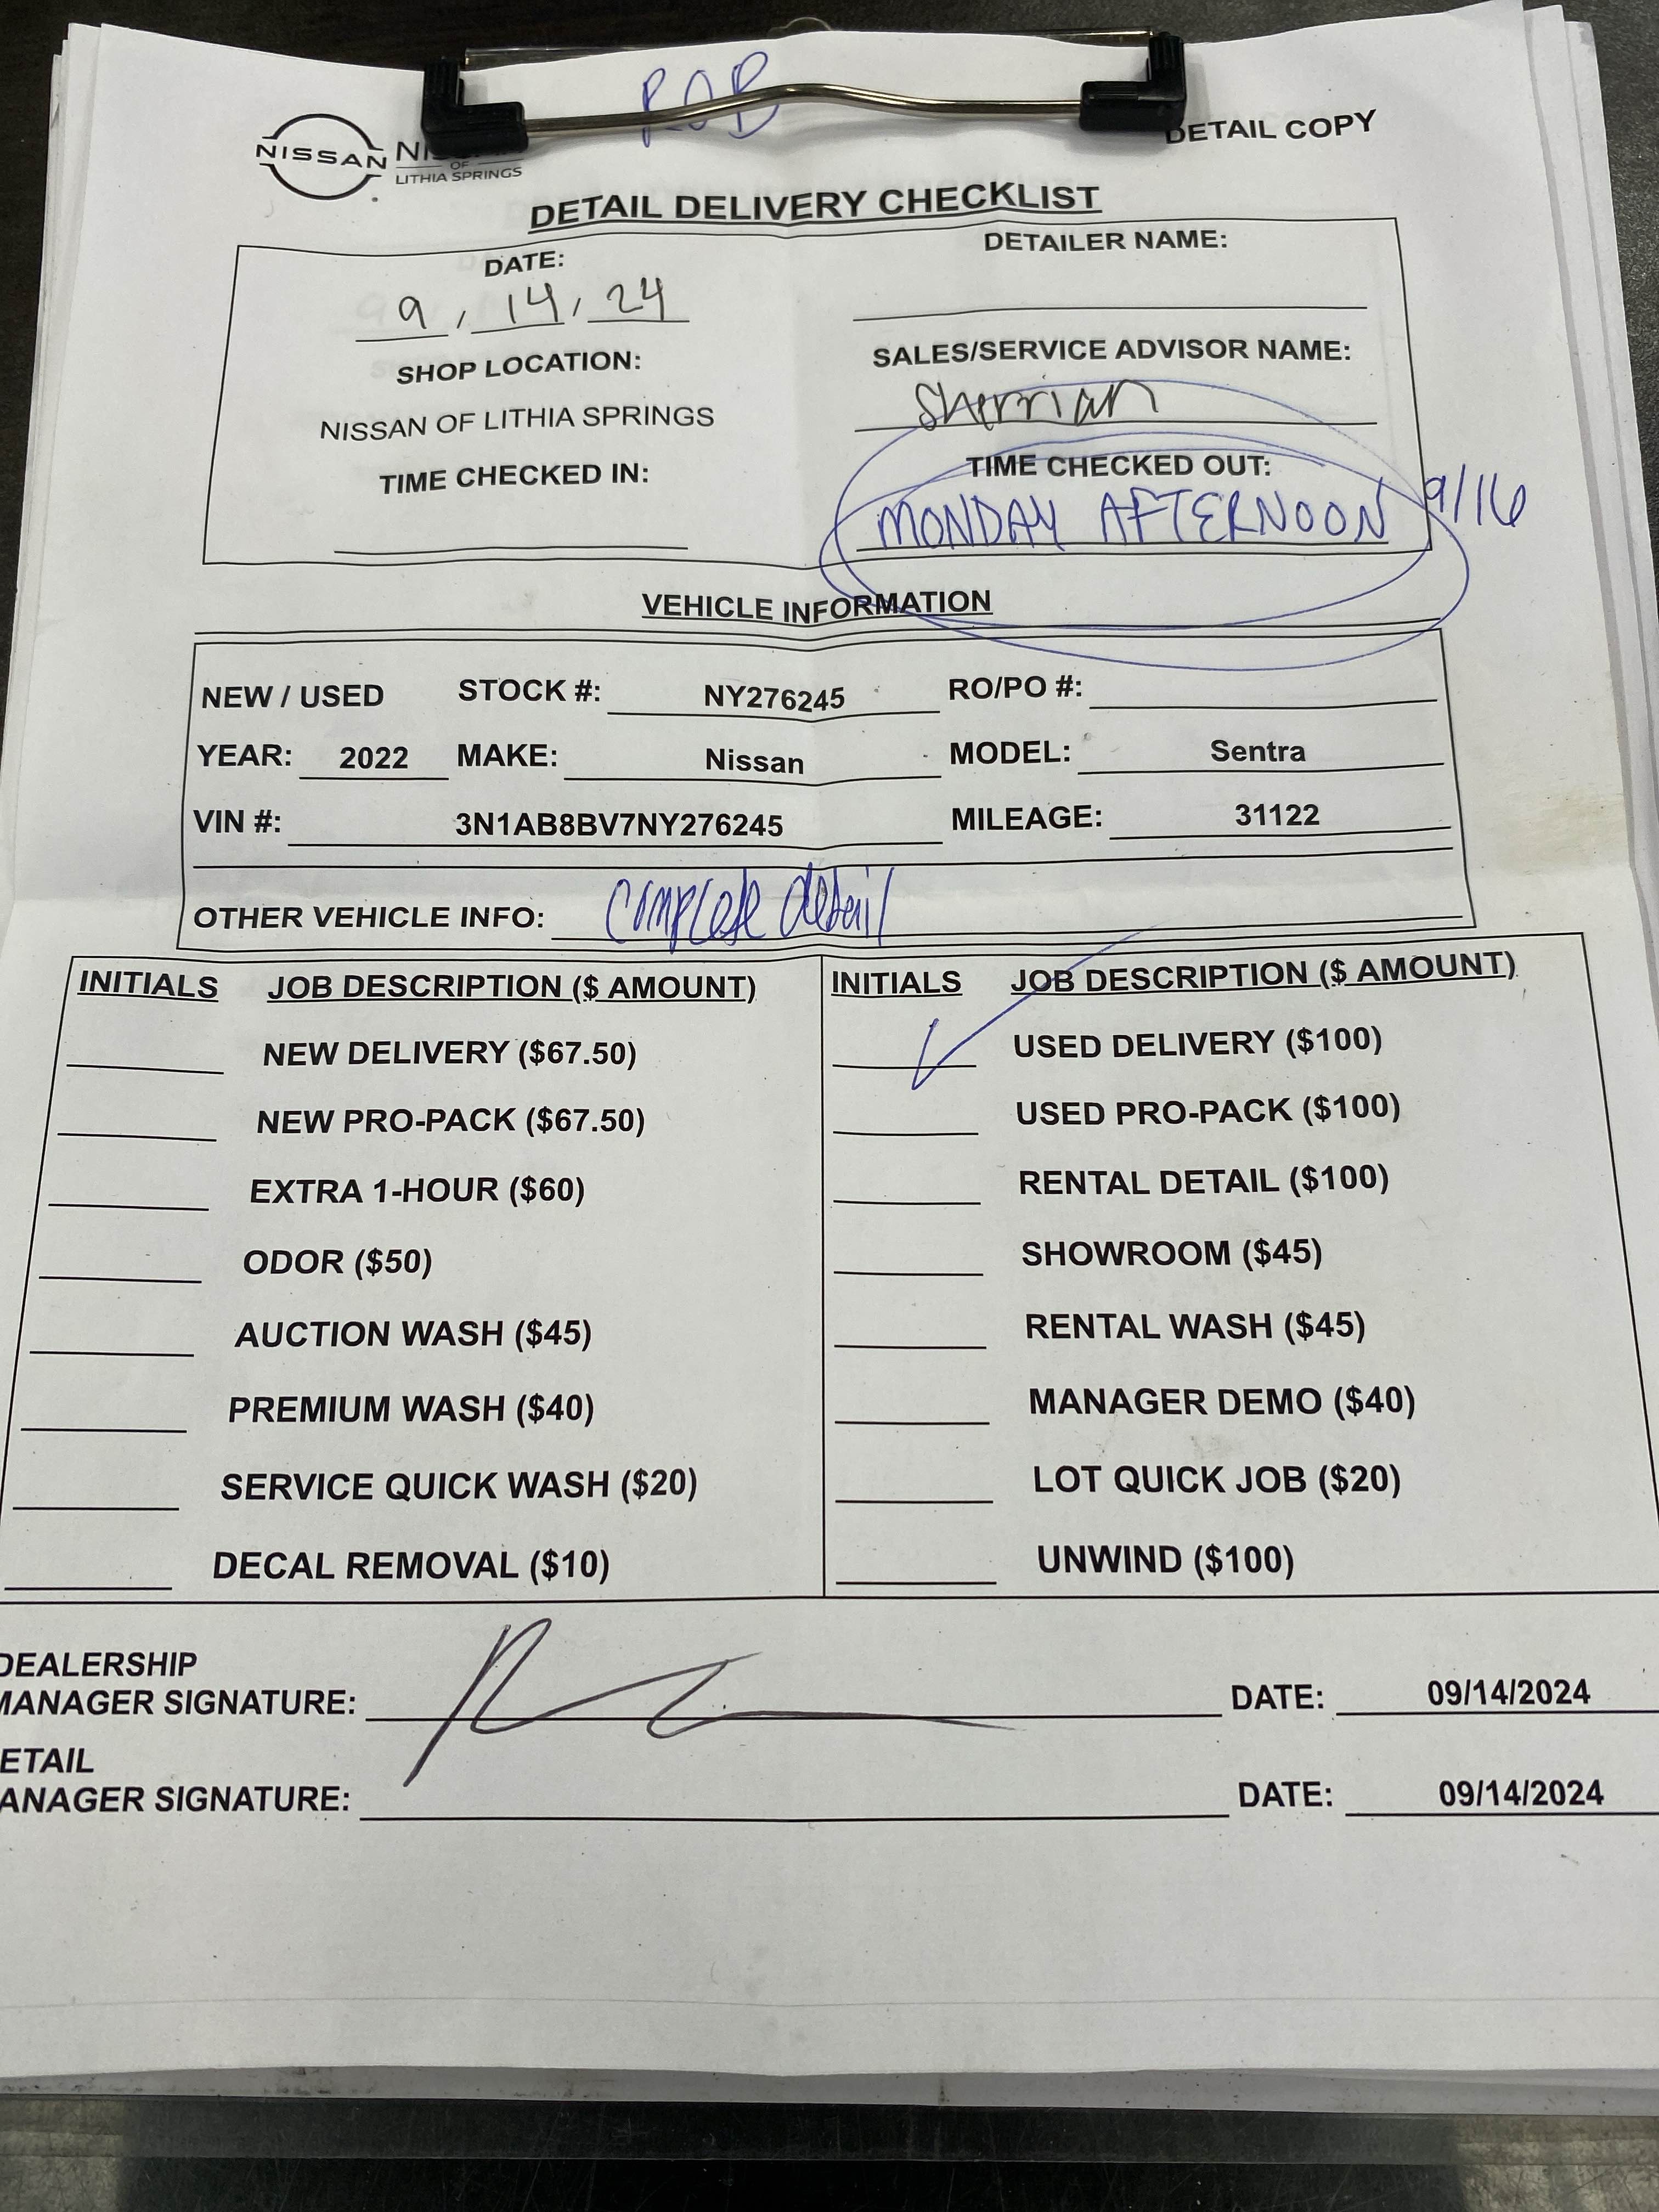 ROB
DETAIL COPY
NISSAN
OF
LITHIA SPRINGS
DETAIL DELIVERY CHECKLIST
DATE:
9, 14, 24
DETAILER NAME:
SHOP LOCATION:
NISSAN OF LITHIA SPRINGS
SALES/SERVICE ADVISOR NAME:
Sherrian
TIME CHECKED IN:
TIME CHECKED OUT:
MONDAY AFTERNOON 9/16
VEHICLE INFORMATION
NEW / USED STOCK #: NY276245 RO/PO #:
YEAR: 2022 MAKE: Nissan MODEL: Sentra
VIN #: 3N1AB8BV7NY276245 MILEAGE: 31122
OTHER VEHICLE INFO: complete detail
INITIALS JOB DESCRIPTION ($ AMOUNT)
NEW DELIVERY ($67.50)
NEW PRO-PACK ($67.50)
EXTRA 1-HOUR ($60)
ODOR ($50)
AUCTION WASH ($45)
PREMIUM WASH ($40)
SERVICE QUICK WASH ($20)
DECAL REMOVAL ($10)
INITIALS JOB DESCRIPTION ($ AMOUNT)
USED DELIVERY ($100)
USED PRO-PACK ($100)
RENTAL DETAIL ($100)
SHOWROOM ($45)
RENTAL WASH ($45)
MANAGER DEMO ($40)
LOT QUICK JOB ($20)
UNWIND ($100)
DEALERSHIP
MANAGER SIGNATURE: DATE: 09/14/2024
ETAIL
ANAGER SIGNATURE: DATE: 09/14/2024